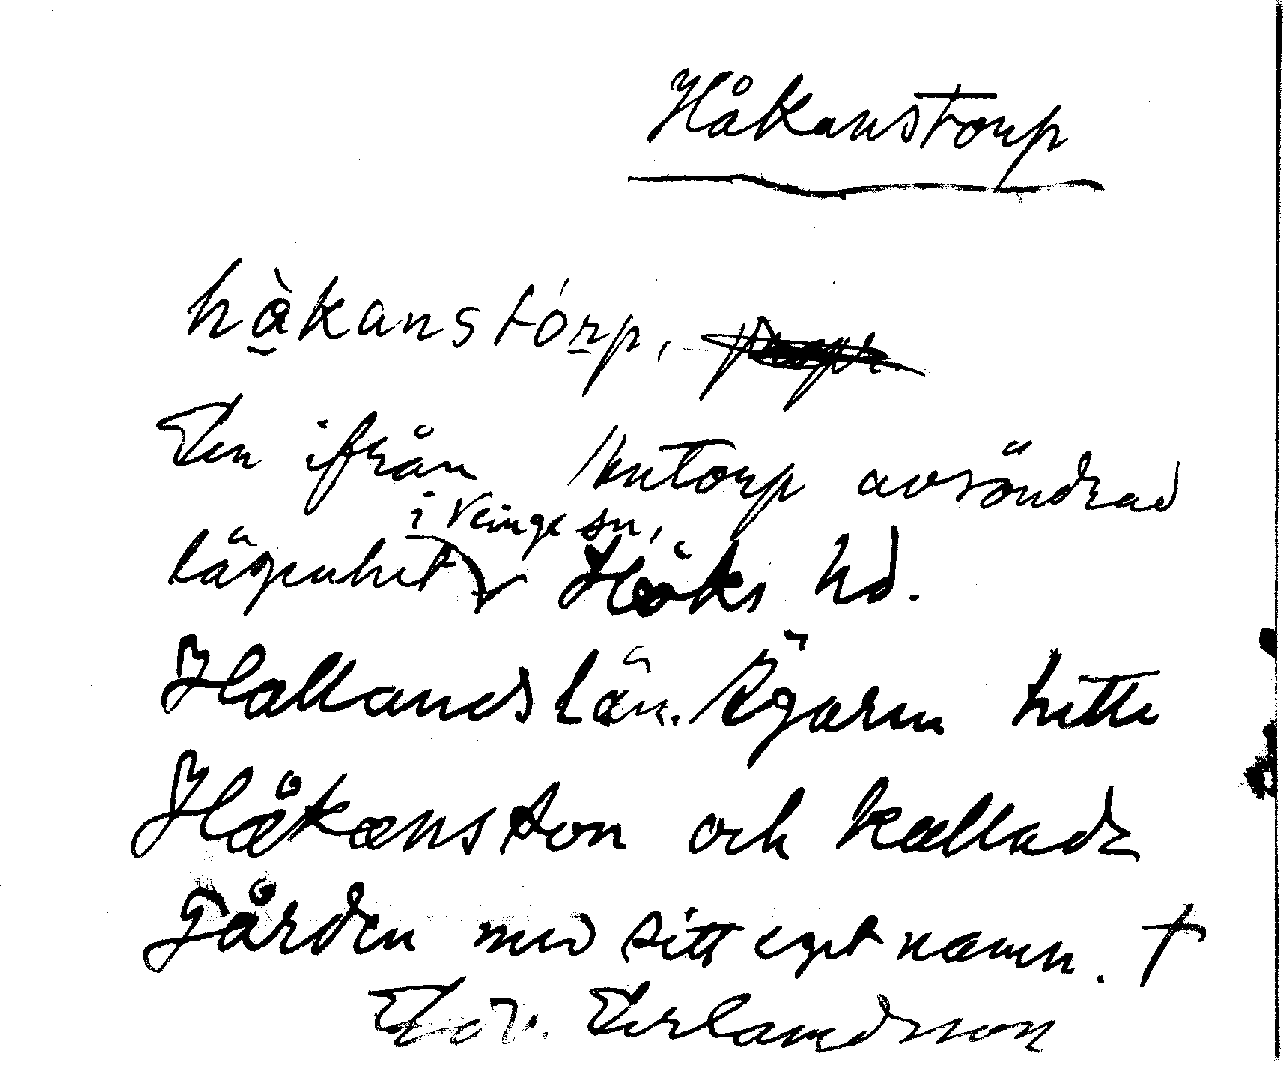 Håkanstorp
håkanstorp,
En ifrån torp avsöndrad
i Veinge sn,
lägenhet Höks hd.
Hallands län. Ägaren hette
Håkansson och kallade
gården med sitt eget namn. †
Erlandsson